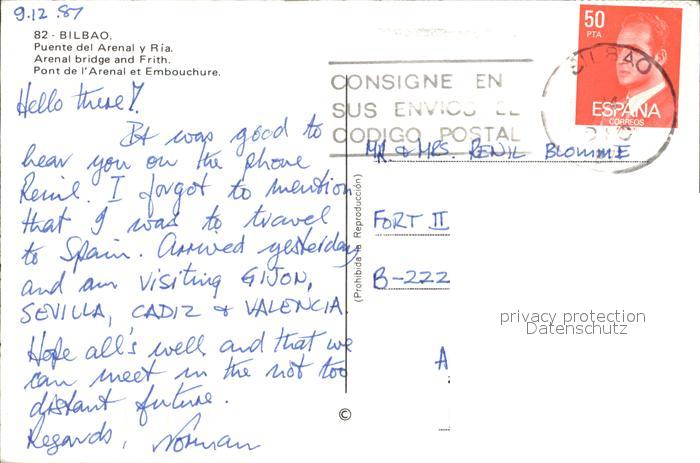 9.12.87
82 - BILBAO.
Puente del Arenal y Ría.
Arenal bridge and Frith.
Pont de l'Arenal et Embouchure.
Hello there!
It was good to
hear you on the phone
Renil. I forgot to mention
that I was to travel
to Spain. Arrived yesterday
and am visiting GIJON,
SEVILLA, CADIZ & VALENCIA.
Hope all's well and that we
can meet in the not too
distant future.
Regards, Norman
(Prohibida la Reproducción)
©
CONSIGNE EN
SUS ENVIOS EL
CODIGO POSTAL
50
PTA
ESPAÑA
CORREOS
BILBAO
MR. & MRS. RENIL BLOMME
FORT II
B-222
A
privacy protection
Datenschutz